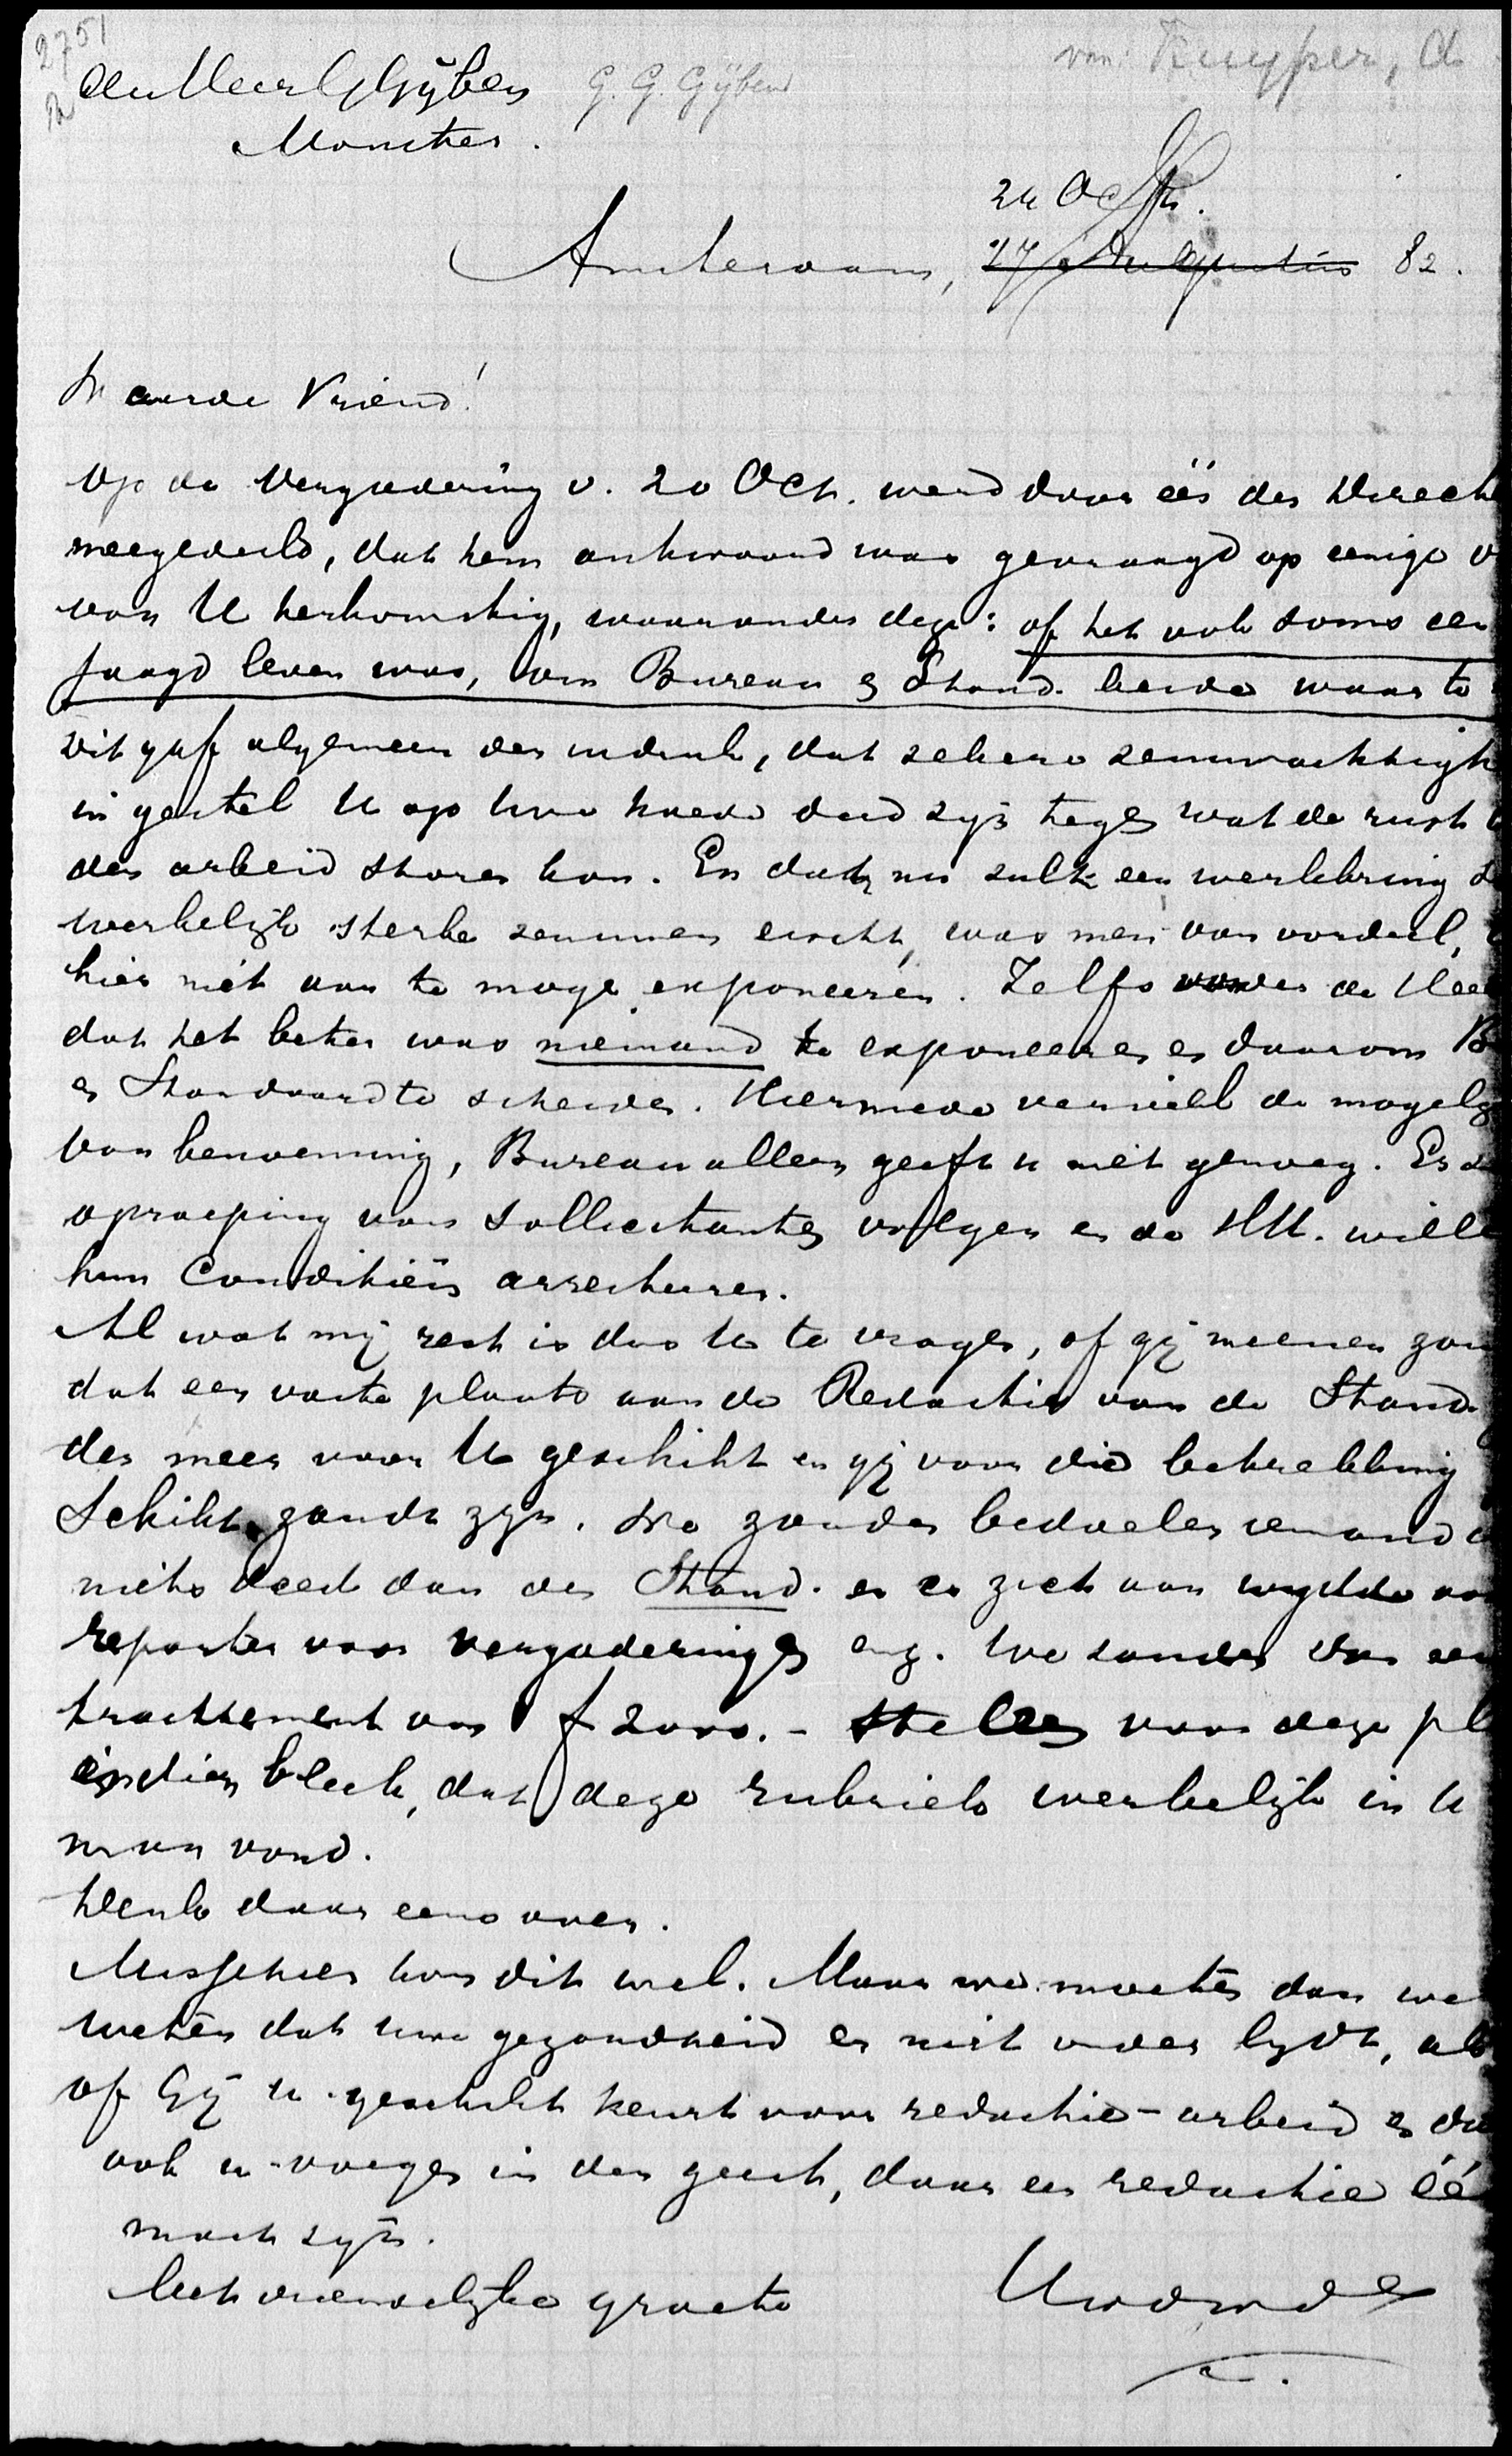 2751
van: Kuyper, A
den Heer G Gijben G. G. Gijben
Monster.
24 Oct.
Amsterdam, 27 Augustus 82.
Waarde Vriend!
Op de Vergadering v. 20 Oct. werd door éés der Direct
meegedeeld, dat hem antwoord was gevraagd op eenige v
van U herkomstig, waaronder deze: of het ook soms een
jaagd leven was, om Bureau en Stand. beide waar te
Dit gaf algemeen den indruk, dat zekere zenuwachtigh
in gestel U op Uwe hoede deed zijn tegen wat de rust
den arbeid storen kon. En daar nu zulk een werkkring
werkelijk sterke zenuwen eischt, was men van oordeel,
hier niet aan te mogen exponeeren. Zelfs vonden de Hee
dat het beter was niemand te exponeeren en daarom B
en Standaard te scheiden. Hiermede verviel de mogelij
van benoeming, Bureau alleen geeft u niet genoeg. Er
oproeping van Sollicitanten volgen en de HH. wille
hun Conditiën
Al wat mij rest is dus U te vragen, of gij meenen zou
dat een vaste plaats aan de Redactie van de Stand.
der meer voor U geschikt en gij voor die betrekking
schikt zoudt zijn. We zouden bedoelen iemand
niets deed dan de Stand. en er zich aan wijdde
reporter voor vergaderingen enz. We zouden dan een
tractement van f 2000.- stellen voor deze pl
indien bleek, dat deze rubriek werkelijk in U
man vond.
Denk daar eens over.
Misschien kon dit wel. Maar we moeten dan we
weten dat Uwe gezondheid er niet onder lijdt, als
of Gij U geschikt keurt voor redactie-arbeid en
ook u voegen in den geest, daar een redactie éé
moet zijn.
Met vriendelijke groete